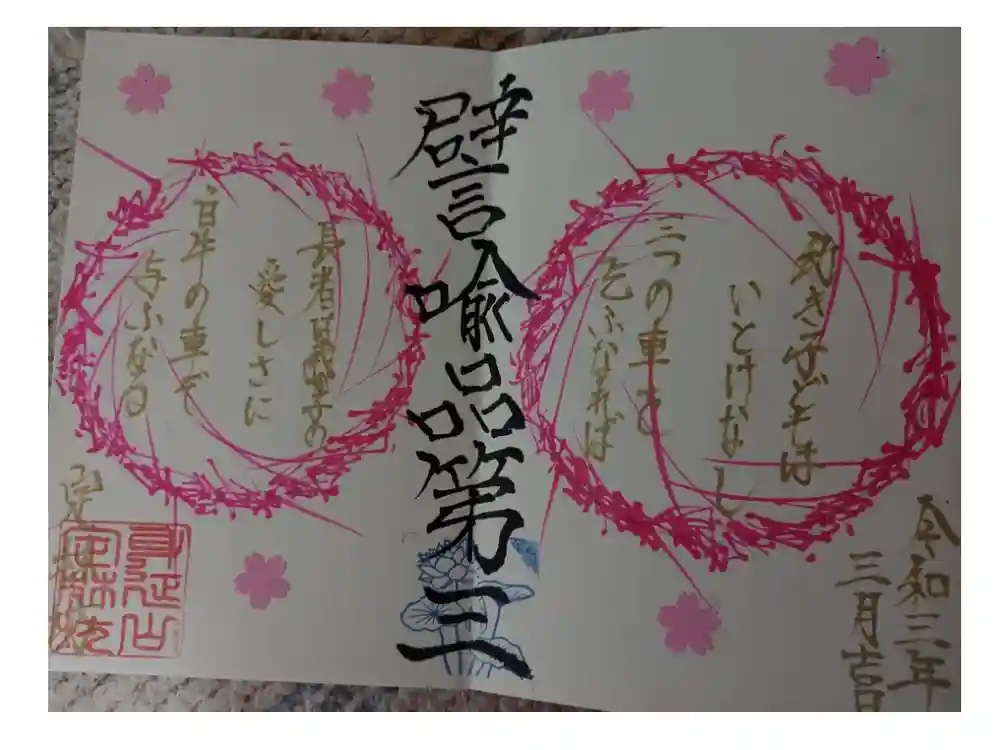 令和三年
三月吉日
き子どもは
いとけなし
三つの車を
乞ふなれば
譬喩品第三
長者は子の
愛しさに
白牛の車ぞ
与ふなる
身延山